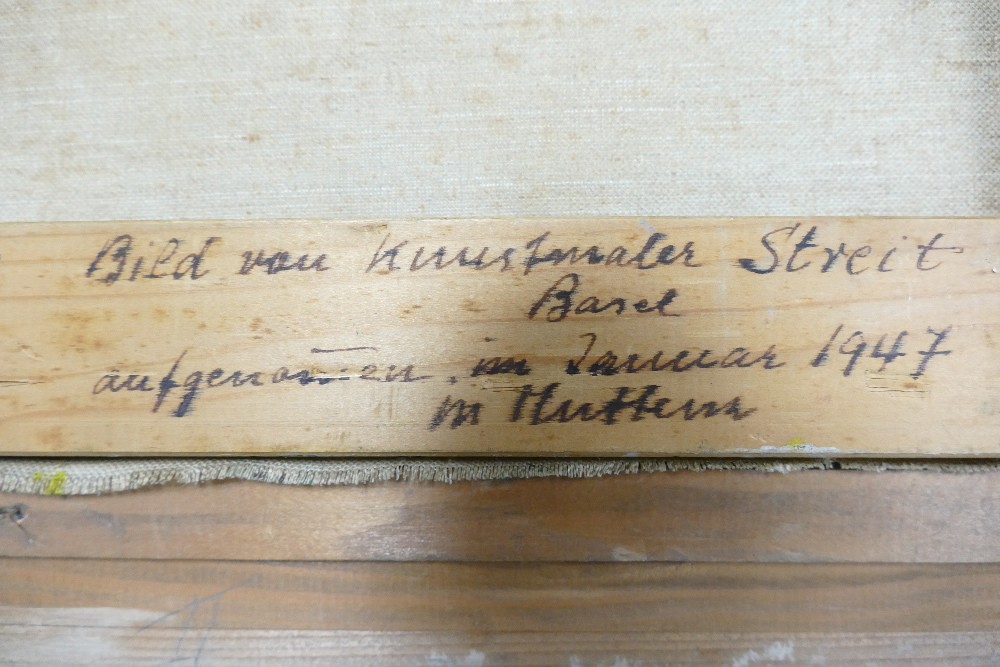 Bild von Kunstmaler Streit
Basel
aufgenom̅en im Januar 1947
in